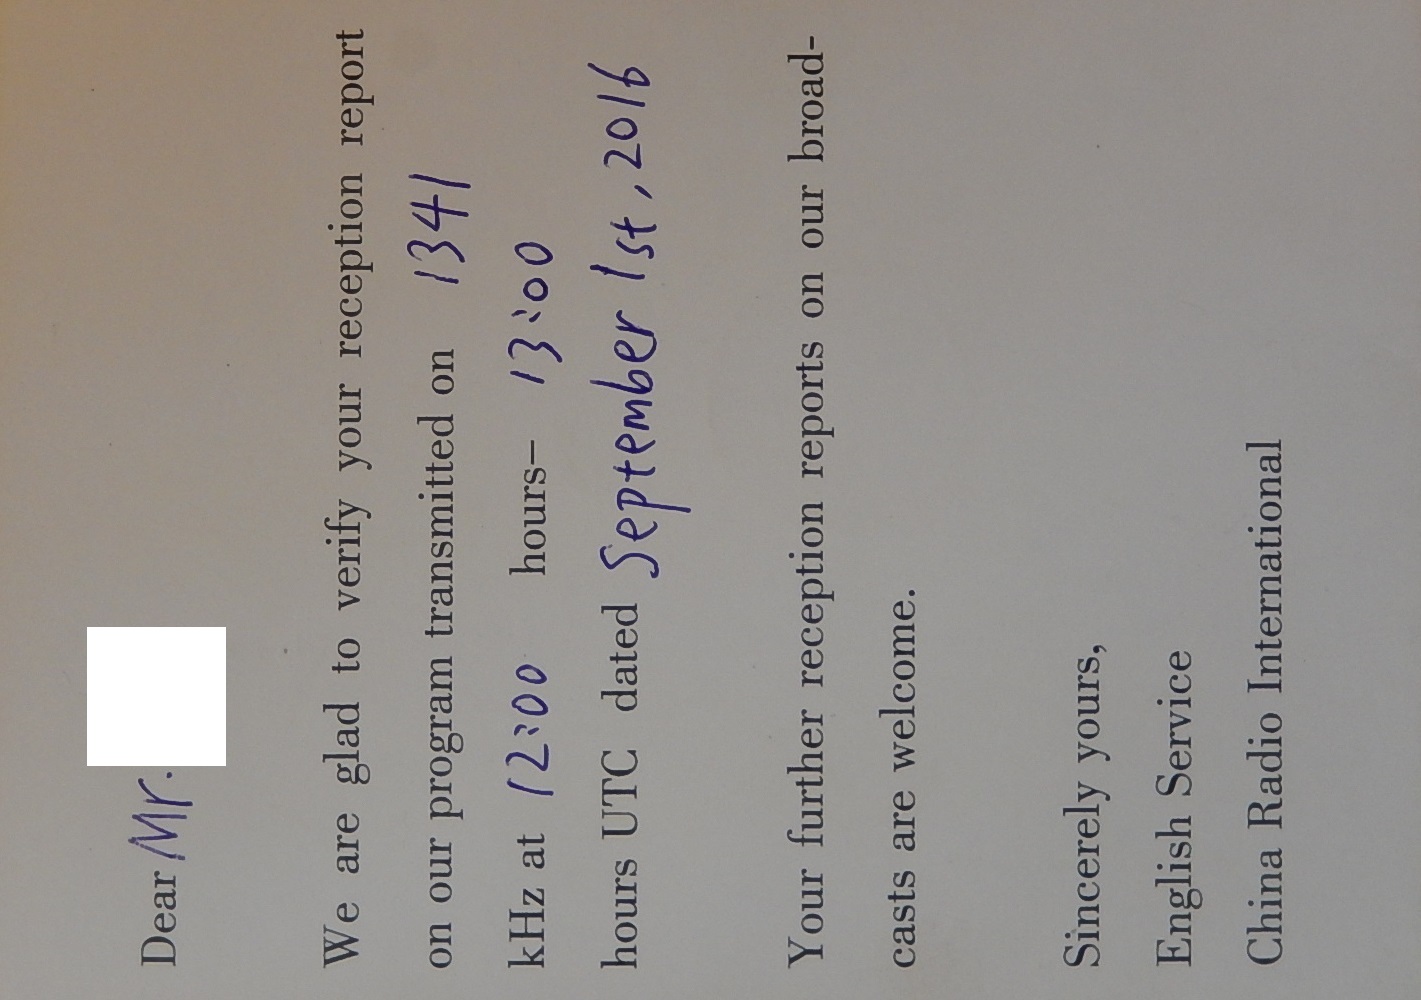 Dear Mr.
We are glad to verify your reception report
on our program transmitted on 1341
kHz at 12:00 hours– 13:00
hours UTC dated September 1st, 2016
Your further reception reports on our broad-
casts are welcome.
Sincerely yours,
English Service
China Radio International